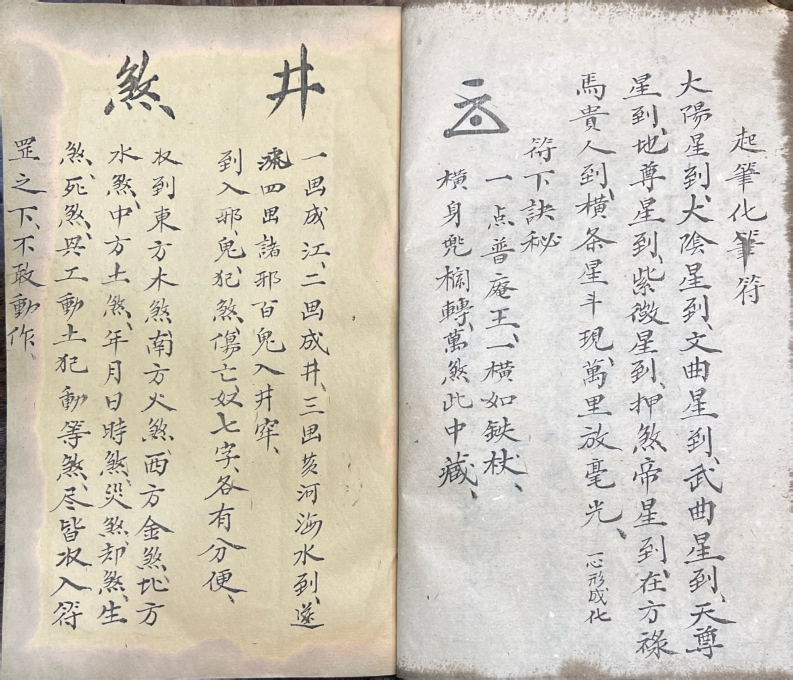 起筆化筆符
太陽星到、太陰星到、文曲星到、武曲星到、天尊
星到、地尊星到、紫微星到、押煞帝星到、在方祿
馬貴人到、橫条星斗現、萬里放毫光、
一心形成化
符下訣秘
一点普庵王、一橫如鉄杖、
橫身兜欄轉、萬煞此中藏、
井
煞
一畄成江、二畄成井、三畄亥河海水到、遂
流四畄諸邪百鬼入井穽、
到入邪鬼犯煞、傷亡奴七字、各有分便、
收到東方木煞、南方火煞、西方金煞、北方
水煞、中方土煞、年月日時煞、災煞却煞、生
煞、死煞、興工動土犯動等煞、尽皆收入符
罡之下、不敢動作、